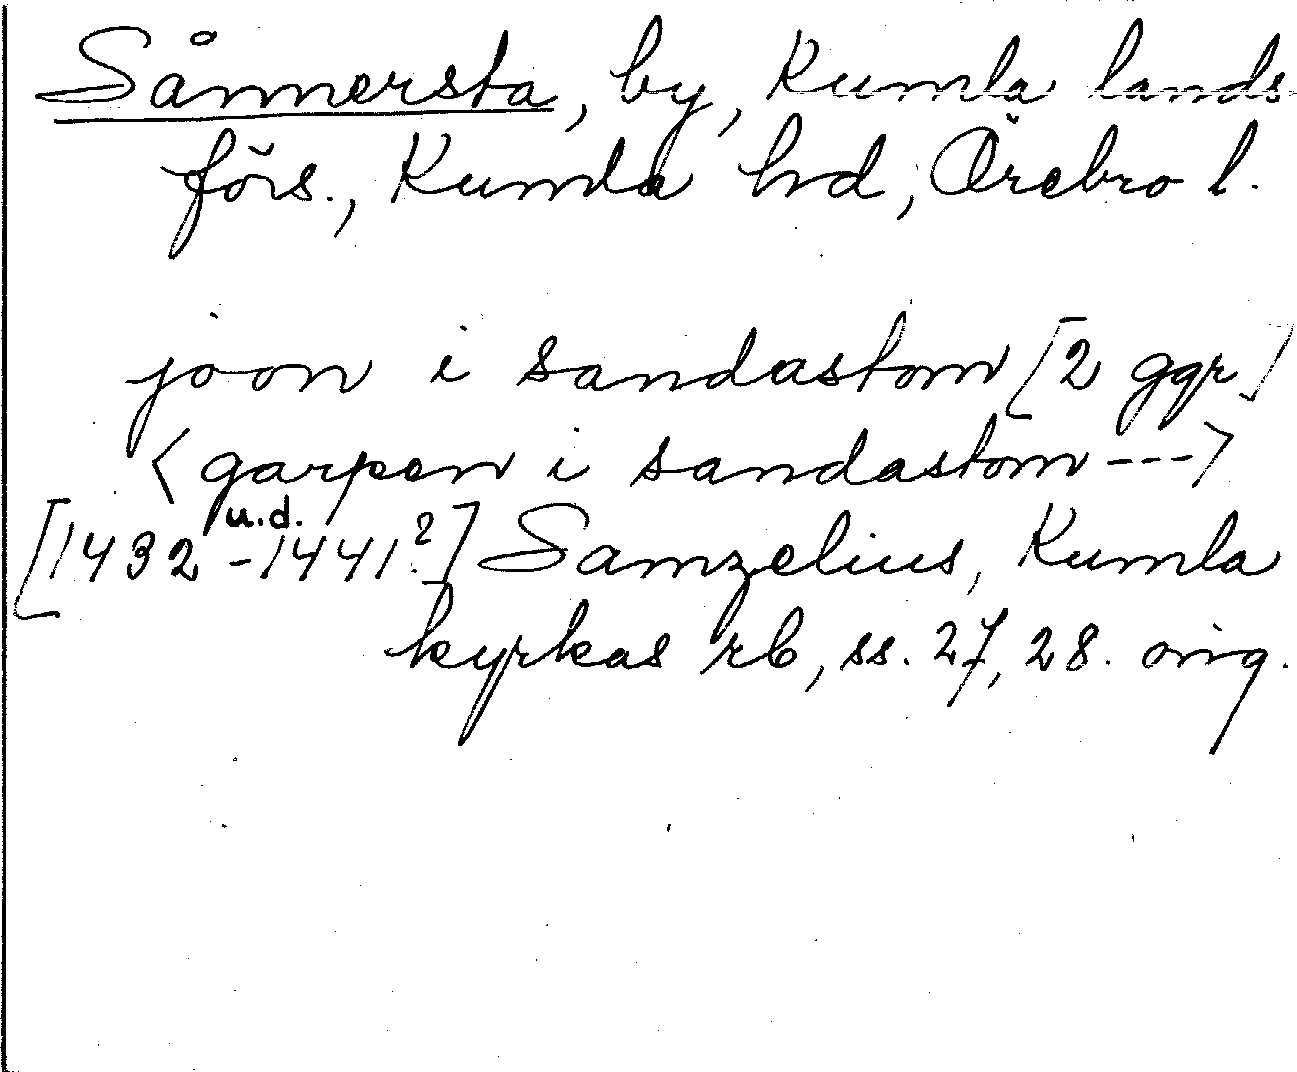 Sånnersta, by, Kumla lands
förs., Kumla hd, Örebro l.
joon i sandastom [2 ggr]
<garpen i sandastom --->
[1432 u.d. -1441?] Samzelius, Kumla
kyrkas rb, ss. 27, 28. orig.